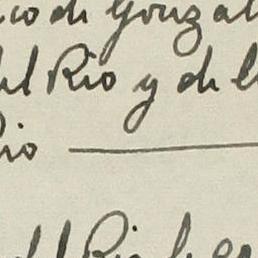 co de Gonzal
del Rio y de l
Rio
del Rio